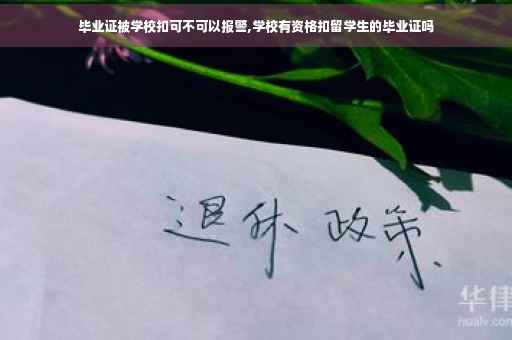 毕业证被学校扣可不可以报警,学校有资格扣留学生的毕业证吗
退休 政策
华律
hualv.com